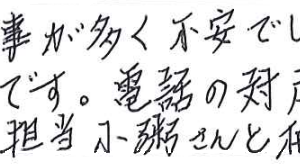 事が多く不安でし
です。電話の対
担当小粥さんと